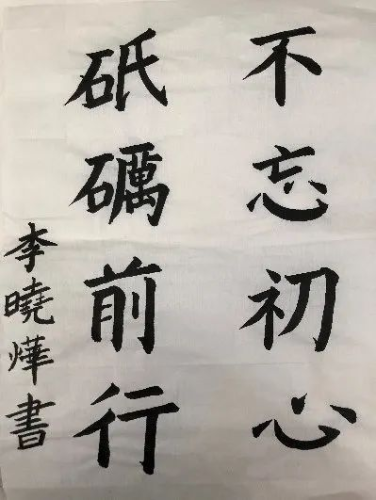 不忘初心
砥礪前行
李曉燁書